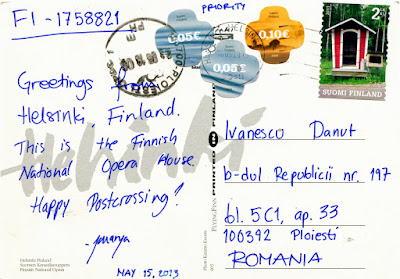 FI - 1758821
PRIORITY
Greetings from
Helsinki, Finland.
This is the Finnish
National Opera House.
Happy Postcrossing!
MAY 15, 2013
Helsinki
Helsinki Finland
Suomen Kansallisooppera
Finnish National Opera
0.05€
0,05€
0.10€
2
SUOMI FINLAND
PLOIESTI
PRINTED IN FINLAND
FLYINGFINN
Ivanescu Danut
b-dul Republicii nr. 197
bl. 5C1, ap. 33
100392 Ploiesti
ROMANIA